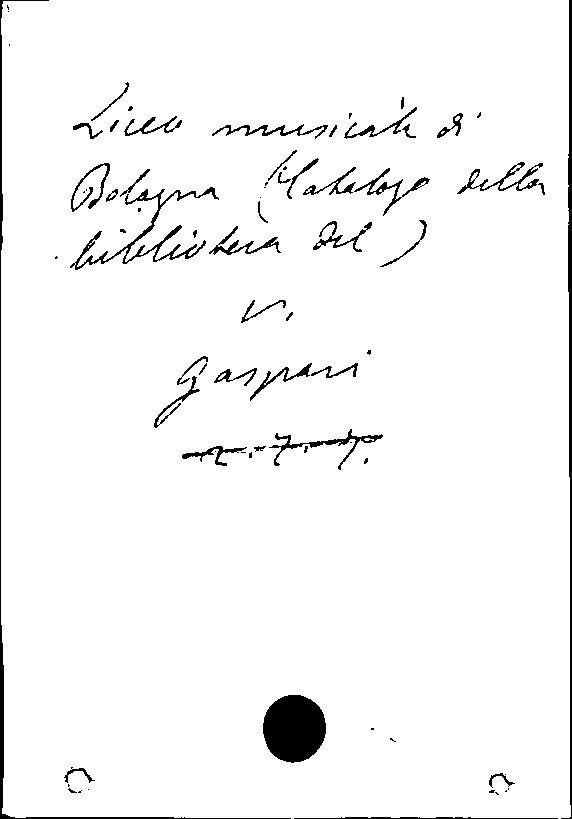 Liceo musicale di
Bologna (Catalogo della
biblioteca del)
v.
Gaspari